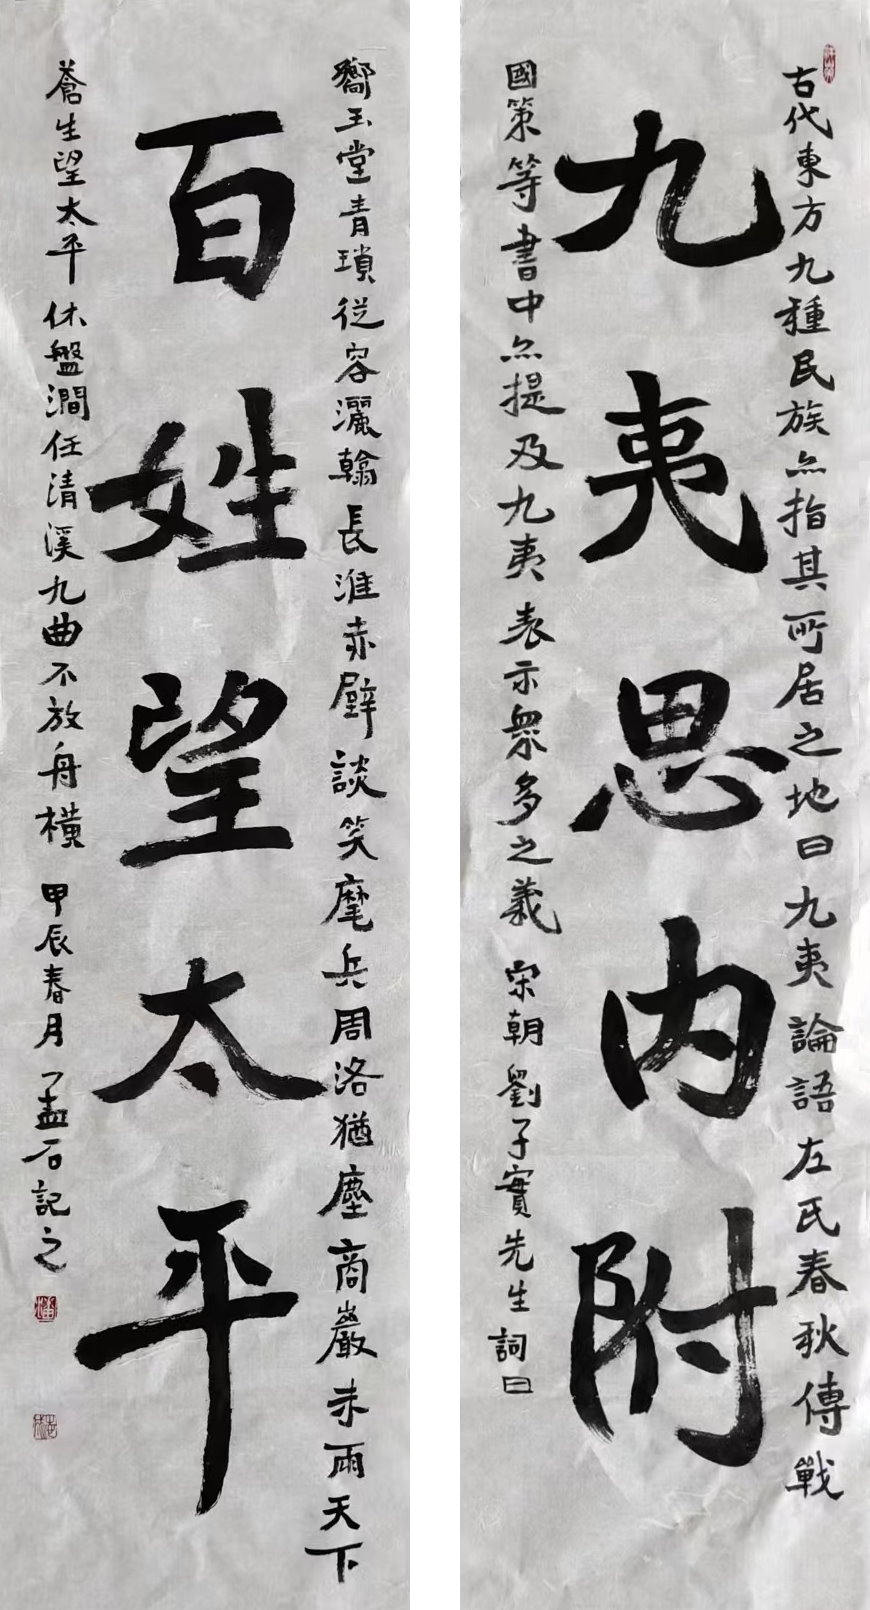 古代東方九種民族亦指其所居之地曰九夷論語左氏春秋傳戰
九夷思內附
國策等書中亦提及九夷表示衆多之義 宋朝劉子實先生詞曰
嚮玉堂青瑣從容灑翰長淮赤壁談笑麾兵周洛猶塵商巖未雨天下
百姓望太平
蒼生望太平休盤澗任清溪九曲不放舟橫 甲辰春月 孟石記之